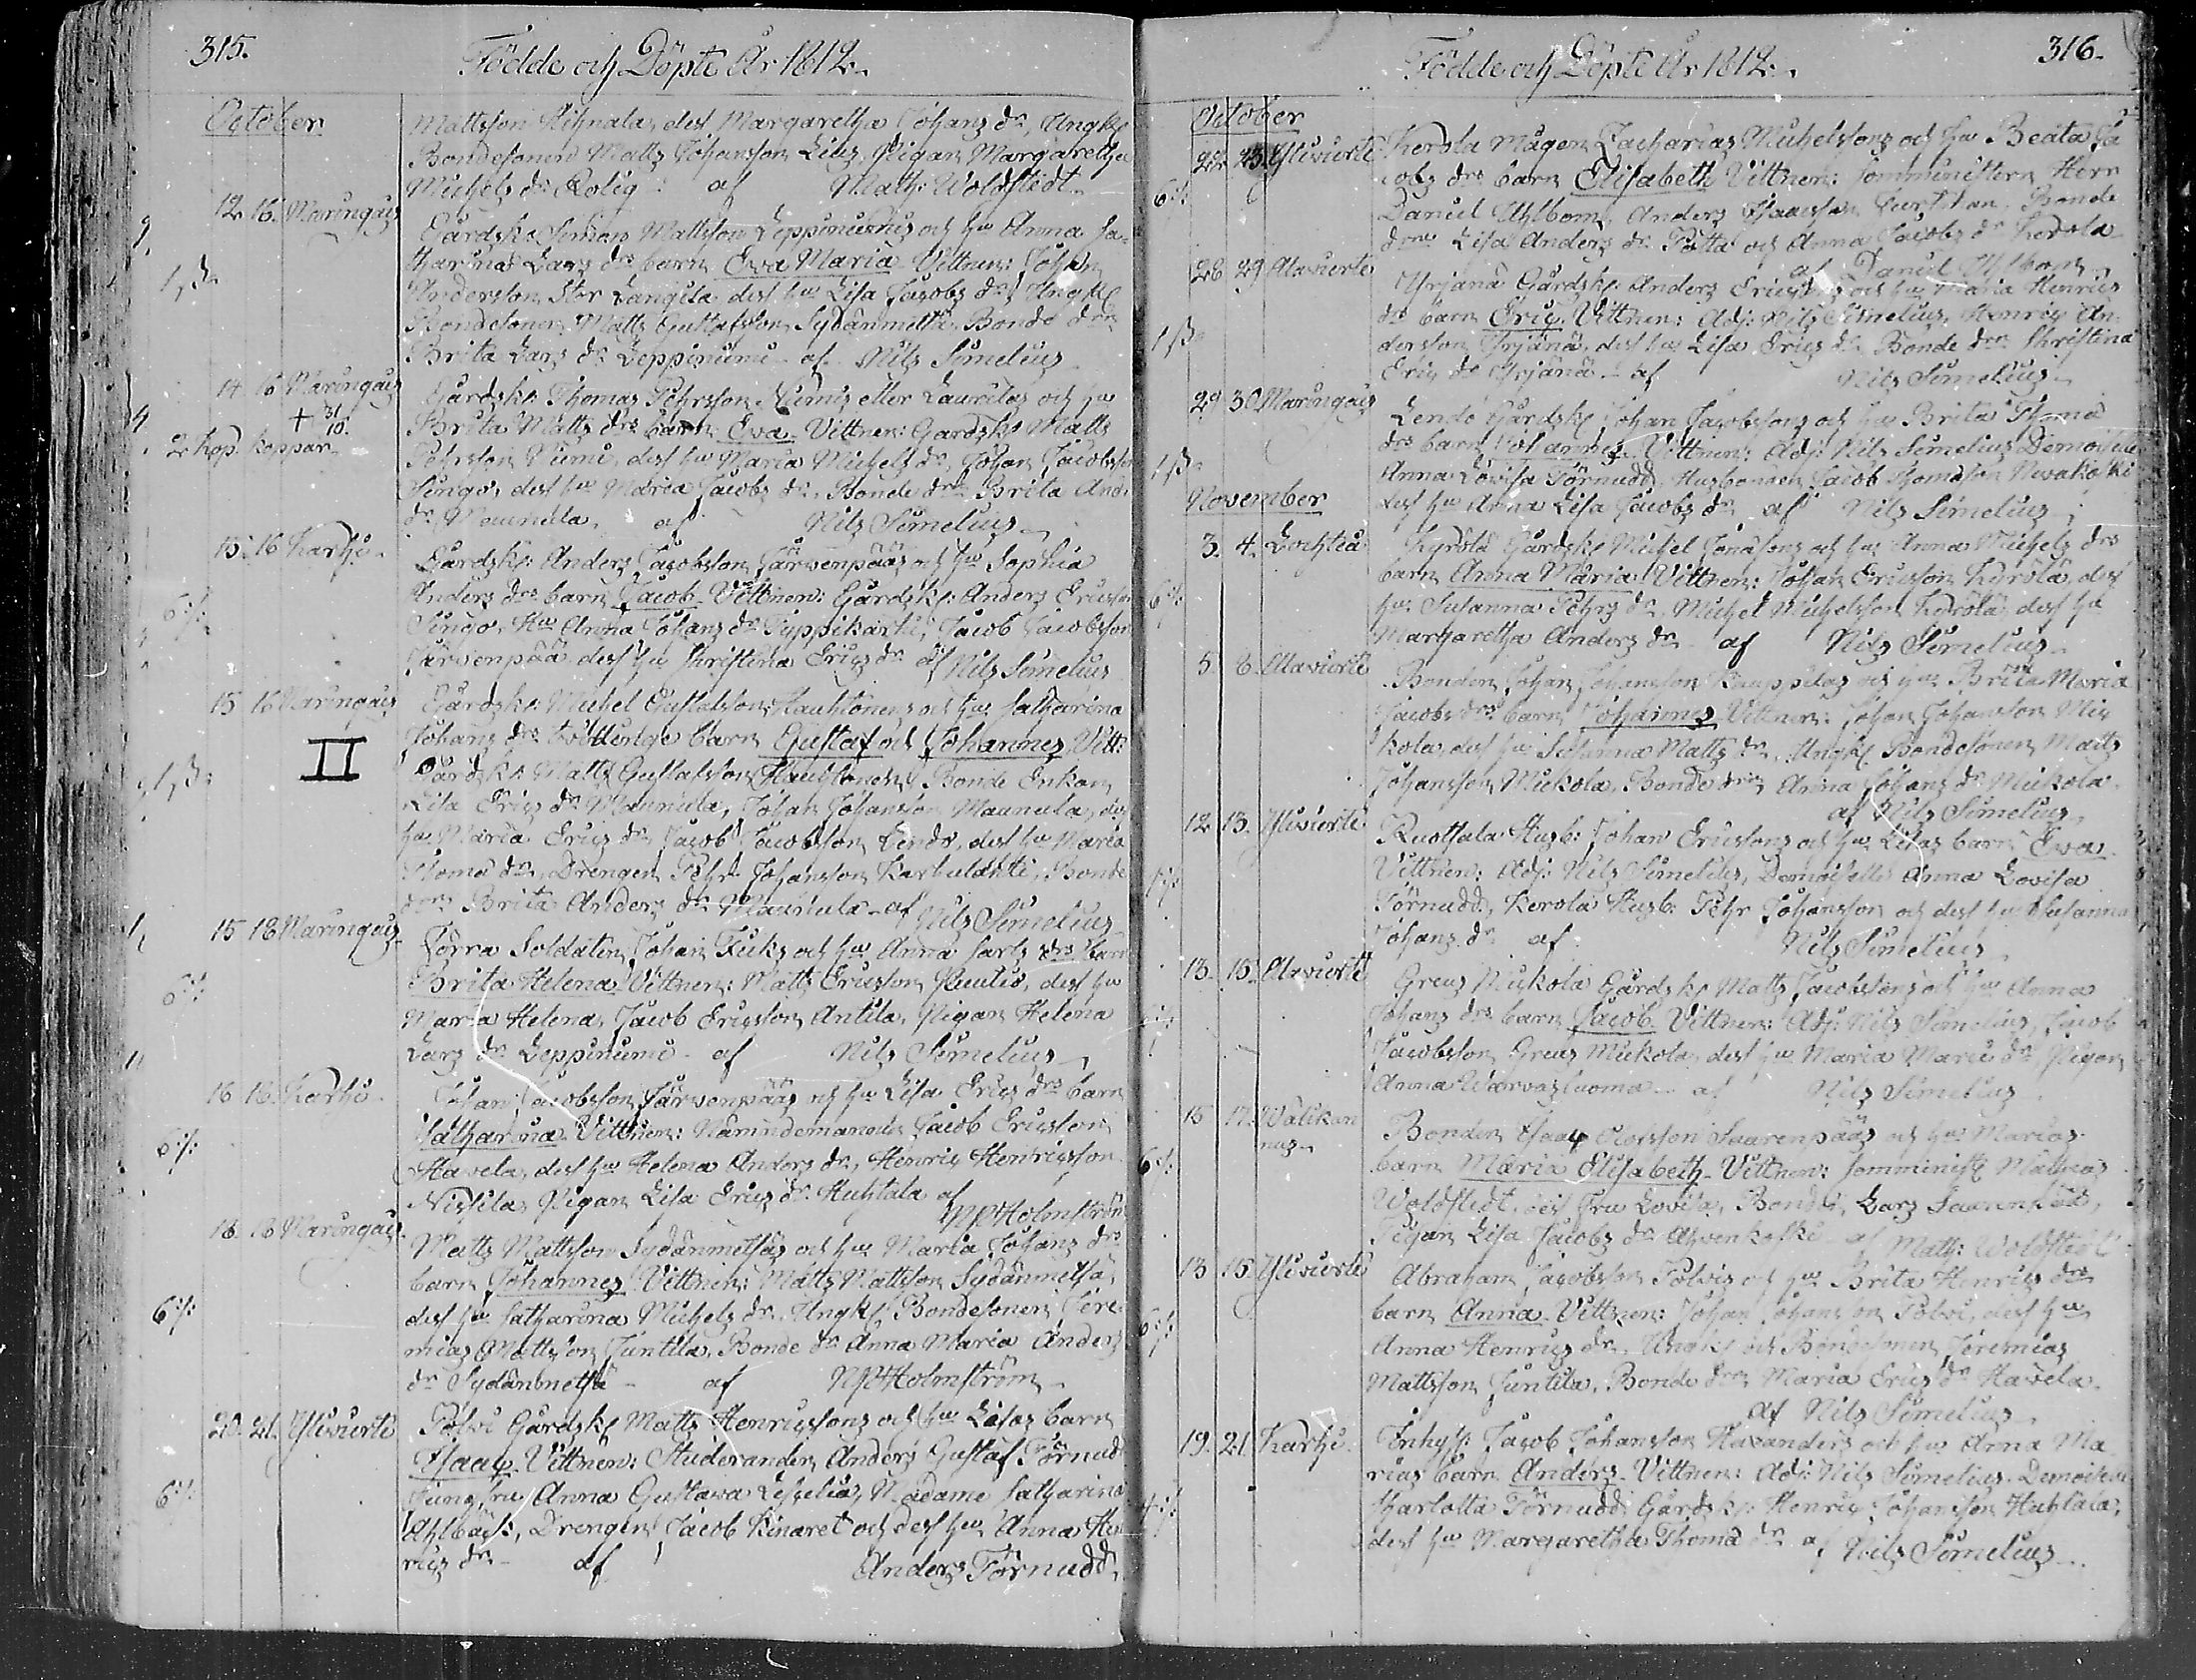 315.
Födde och Döpte År 1812.
October
Mattsson Kihnala, dess Margaretha Johans dr, Ungk.
Bondesonen Matts Johansson Lius, Pigan Margaretha
Michels dr Rolig af Math: Woldstedt
12 16. Maringais
Gårdsk. Simon Mattsson Leppiniemis och hu Anna Ca-
tharina Lars drs barn Eva Maria Vittnen: Johan
1 dr
Andersson Stor Langila dess hu Lisa Jacobs dr, Ungk.
Bondesonen Matts Gustafsson Sydänmettä, Bonde dren
Brita Lars dr Leppiniemi af Nils Simelius
14 16 Maringais
Gårdsk. Thomas Pehrsson Niemis eller Laurilas och hu
+ 31/10.
Brita Matts drs barn Eva Vittnen: Gårdsk. Matts
2 kop. koppar
Pehrsson Niemi, dess hu Maria Michels dr, Johan Jacobsson
Singo, dess hu Maria Jacobs dr, Bonde dren Brita And.
dr Maunula, af Nils Simelius
15. 16 Karhi
Gårdsk: Anders Jacobsson Järvenpääs och hu Sophia
Anders drs barn Jacob Vittnen: Gårdsk: Anders Ericsson
6:/:
Singo, hu Anna Johans dr Typpikarki, Jacob Jacobsson
Järvenpää dess hu Christina Erics dr af Nils Simelius
15 16 Maringais
Gårdsk: Michel Gustafsson Hauktonens och hu Catharina
Johans drs tvillinge barn Gustaf och Johannes Vitt:
II
Gårdsk: Matts Gustafsson Bonde Enkan
Lisa Erics dr Maunula, Johan Johansson Maunula, dess
hu Maria Erics dr, Jacob Jacobsson Lendo, dess hu Maria
Thoma dr, Drengen Pehr Johansson Karhulahti, Bonde
dren Brita Anders dr Maunula af Nils Simelius
15 18 Maringais
Förra Soldaten Johan Fuks och hu Anna Carls drs barn
Brita Helena Vittnen: Matts Ericsson Puutio, dess hu
Maria Helena, Jacob Ericsson Antila, Pigan Helena
Lars dr Leppiniemi af Nils Simelius
16 16. Karhi
Johan Jacobsson Järvenpääs och hu Lisa Erics drs barn
Catharina Vittnen: Nämndemannen Jacob Ericsson
6:/:
Havela, dess hu Helena Anders dr, Henric Henricsson
Nissila, Pigan Lisa Erics dr Huhtala af
NPHolmström
16. 18 Maringais
Matts Mattsson Sydänmetsäs och hu Maria Johans drs
barn Johannes Vittnen: Matts Mattsson Sydänmetsä,
6:/:
dess hu Catharina Michels dr, Ungk. Bondesonen Jere-
mias Mattsson Juntila, Bonde dr Anna Maria Anders
dr Sydänmetsä af NPHolmström
20. 21. Ylivierte
Polvi Gårdsk. Matts Henricssons och hu Lisas barn
Isaac Vittnen: Studeranden Anders Gustaf Törnudd
Jungfru Anna Gustava Lithelia, Madame Catharina
6:/:
Ahlbäck, Drengen Jacob Kinaret och dess hu Anna Hen-
rics dr af Anders Törnudd
Födde och Döpte År 1812.
316.
October
22. 23. Ylivierte
Kerola Mågen Zacharias Michelssons och hu Beata Ja-
cobs drs barn Elisabeth Vittnen: Comministern Herr
6:/:
Daniel Uhlbom, Anders Isaacsson, Bonde
dren Lisa Anders dr Pottala och Anna Jacobs dr Kerola
af Daniel Uhlbom
28 29 Alavierte
Yrjänä Gårdsk. Anders Ericssons och hu Maria Henrics
dr barn Eric Vittnen: Adj: Nils Simelius, Henric An-
dersson Yrjänä, dess hu Lisa Erics dr Bonde dren Christina
Erics dr Yrjänä af Nils Simelius
29 30. Maringais
Lendo Gårdsk. Johan Jacobssons och hu Brita Thoma
drs barn Johannes Vittnen: Adj: Nils Simelius Demoiselle
Anna Lovisa Törnudd, Husbonden Jacob Thomasson Nivakoski
dess hu Anna Lisa Jacobs dr af Nils Simelius
November
3. 4. Lochteå
Kyrölä Gårdsk. Michel Jonassons och hu Anna Michels drs
barn Anna Maria Vittnen: Johan Ericsson Kyrölä, dess
6:/:
hu Susanna Pehrs dr, Michel Michelsson Kyrölä dess hu
Margaretha Anders dr af Nils Simelius
5. 8. Alavierte
Bonden Johan Johansson Kauppilas och hu Brita Maria
Jacobs drs barn Johannes Vittnen: Johan Johansson Mie-
kola, dess hu Susanna Matts dr, Ungk. Bondesonen Matts
Johansson Miekola, Bonde dren Anna Johans dr Miekola
af Nils Simelius
12 13. Ylivierte
Ruothala Husb: Johan Ericssons och hu Lisas barn Eva
Vittnen: Adj: Nils Simelius, Demoiselle Anna Lovisa
Törnudd, Kerola Husb: Pehr Johansson och dess hu Susanna
Johans dr af Nils Simelius
13. 15. Alavierte
Greus Miekola Gårdsk. Matts Jacobssons och hu Anna
Johans drs barn Jacob Vittnen: Adj: Nils Simelius, Jacob
Jacobsson Greus Miekola, dess hu Maria Maric dr, Pigan
Anna Warvasluoma af Nils Simelius
15 17. Wälikan
nus
Bonden Isaac Olofsson Saarenpääs och hu Marias
6:/:
barn Maria Elisabeth Vittnen: Comminist. Mathias
Woldstedt, dess Fru Lovisa, Bonden Lars Saarenpää,
Pigan Lisa Jacobs dr Ahvenkoski af Math: Woldstedt
13 15. Ylivierte
Abraham Jacobsson Polvis och hu Brita Henrics drs
barn Anna Vittnen: Johan Johansson Polvi, dess hu
6:/:
Anna Henrics dr, Ungk. och Bondesonen Jeremias
Mattsson Juntila, Bonde dren Maria Erics dr Havela
af Nils Simelius
19. 21. Karhi
Inhys: Jacob Johansson Havanders och hu Anna Ma-
rias barn Anders Vittnen: Adj: Nils Simelius, Demoiselle
Charlotta Törnudd, Gårdsk: Henric Johansson Huhtala,
dess hu Margaretha Thoma dr af Nils Simelius